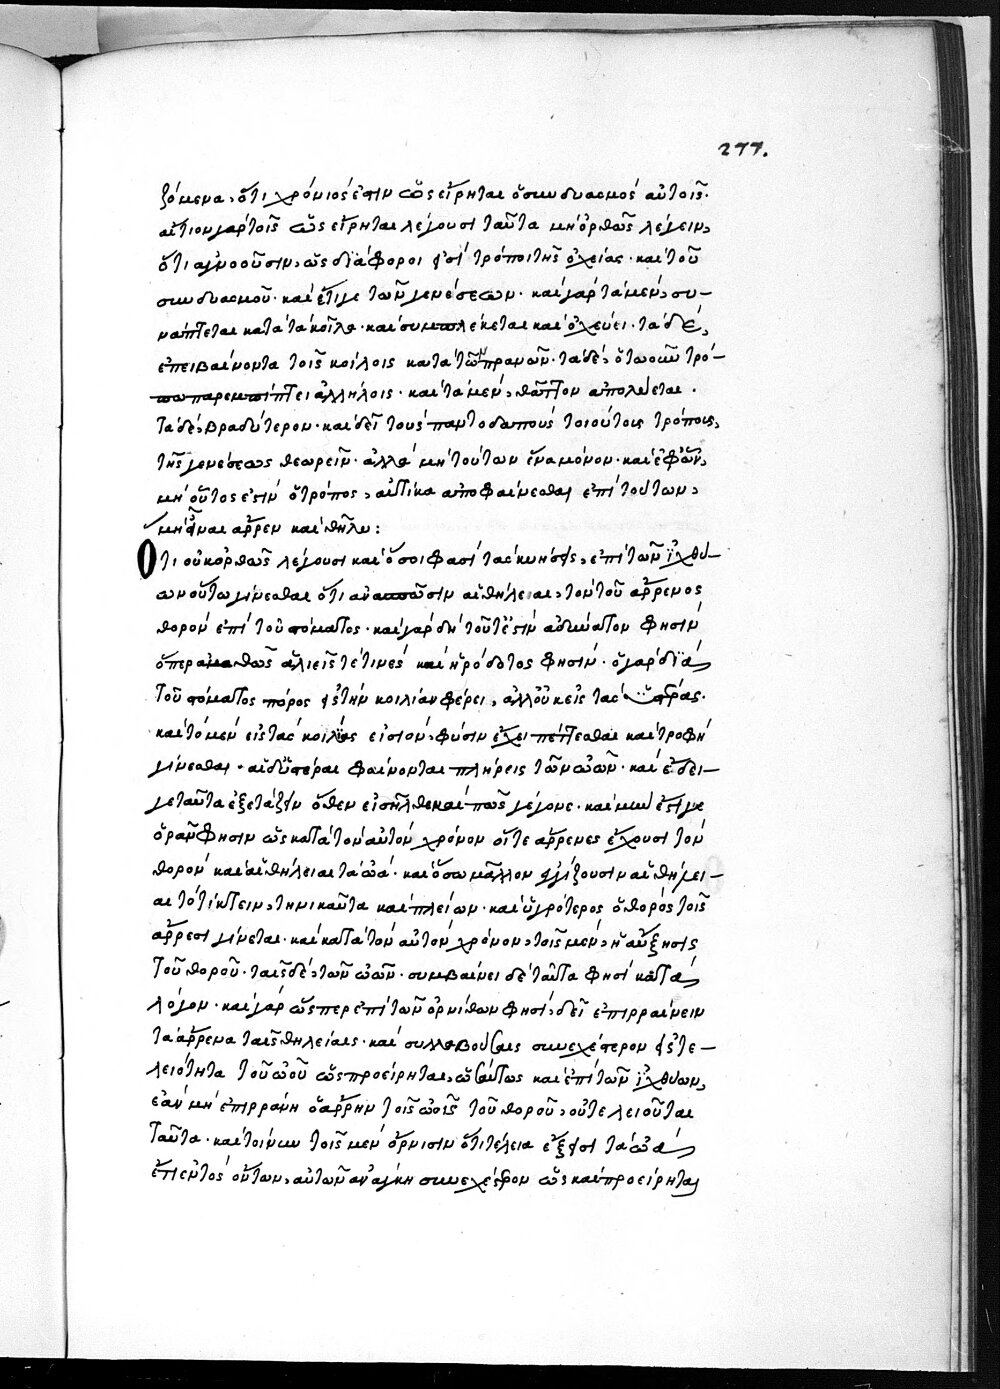 277.
ζόμενα, ὅτι χρόνιός ἐστιν ὡς εἴρηται ὁ συνδυασμός αὐτοῖς.
αἴτιον γὰρ τοῖς ὡς εἴρηται λέγουσι ταῦτα μὴ ὀρθῶς λέγειν,
ὅτι ἀγνοοῦσιν, ὡς διάφοροι εἰσὶ τρόποι τῆς ὀχείας· καὶ τοῦ
συνδυασμοῦ· καὶ ἔτι γε τῶν γενέσεων. καὶ γὰρ τὰ μὲν, συ-
νάπτεται κατὰ τὰ κοῖλα· καὶ συμπλέκεται καὶ ὀχεύει· τὰ δὲ,
ἐπιβαίνοντα τοῖς κοίλοις κατὰ τῶν πρανῶν· τὰ δὲ, ὅτω οὖν τρό-
πω παρεμπίπτει ἀλλήλοις· καὶ τὰ μὲν, θᾶττον ἀπολύεται.
τὰ δὲ, βραδύτερον· καὶ δεῖ τοὺς παντοδαποὺς τοιούτοις τρόποις,
τῆς γενέσεως θεωρεῖν. ἀλλὰ μὴ τούτων ἕνα μόνον· καὶ ἐφ' ὧν,
μὴ οὗτος ἐστὶν ὁ τρόπος, αὐτίκα ἀποφαίνεσθαι ἐπὶ τούτων,
μὴ εἶναι ἄρρεν καὶ θῆλυ:
Ὅτι οὐκ ὀρθῶς λέγουσι καὶ ὅσοι φασὶ τὰς κυήσεις, ἐπὶ τῶν ἰχθύ-
ων οὕτω γίνεσθαι ὅτι ἀνασπῶσιν αἱ θήλειαι, τὸν τοῦ ἄρρενος
θορὸν ἐπὶ τοῦ στόματος· καὶ γὰρ δὴ τοῦτ' ἐστὶν ἀδύνατον φησὶν
ὅπερ ἀμαθῶς ἁλιεῖς τέ τινες καὶ ἡρόδοτος φησίν. ὁ γὰρ διὰ
τοῦ στόματος πόρος εἰς τὴν κοιλίαν φέρει, ἀλλ' οὐκ εἰς τὰς ὑστέρας.
καὶ τὸ μὲν εἰς τὰς κοιλίας εἰσιὸν, φύσιν ἔχει πέττεσθαι καὶ τροφὴ
γίνεσθαι. αἱ δ' ὑστέραι φαίνονται πλήρεις τῶν ὠῶν. καὶ ἔδει-
γε ταῦτα ἐξετάζειν ὅθεν εἰσῆλθε καὶ πῶς γέγονε. καὶ νῦν ἔστι γε
ὁρᾶν φησιν ὡς κατὰ τὸν αὐτὸν χρόνον οἵτε ἄρρενες ἔχουσι τὸν
θορὸν καὶ αἱ θήλειαι τὰ ὠά· καὶ ὅσω μᾶλλον ἐγγίζουσιν αἱ θήλει-
αι τὸ τίκτειν, τηνικαῦτα καὶ πλείων· καὶ ὑγρότερος ὁ θορὸς τοῖς
ἄρρεσι γίνεται. καὶ κατὰ τὸν αὐτὸν χρόνον, τοῖς μὲν, ἡ αὔξησις
τοῦ θοροῦ. ταῖς δὲ, τῶν ὠῶν. συμβαίνει δὲ ταῦτα φησὶ κατὰ
λόγον. καὶ γὰρ ὥσπερ ἐπὶ τῶν ὀρνίθων φησὶ, δεῖ ἐπιρραίνειν
τὰ ἄρρενα ταῖς θηλείαις. καὶ συλλαβούσαις συνεχέστερον εἰς τε-
λειότητα τοῦ ὠοῦ ὡς προείρηται, ὡσαύτως καὶ ἐπὶ τῶν ἰχθύων,
ἐὰν μὴ ἐπιρράνη ὁ ἄρρην τοῖς ὠοῖς τοῦ θοροῦ, οὐ τελειοῦται
ταῦτα. καὶ τοίνυν τοῖς μὲν ὄρνισιν ὅτι τέλεια ἔξεισι τὰ ὠὰ
ἔτι ἐντὸς ὄντων, αὐτῶν ἀνάγκη συνεχέστερον ὡς καὶ προείρηται